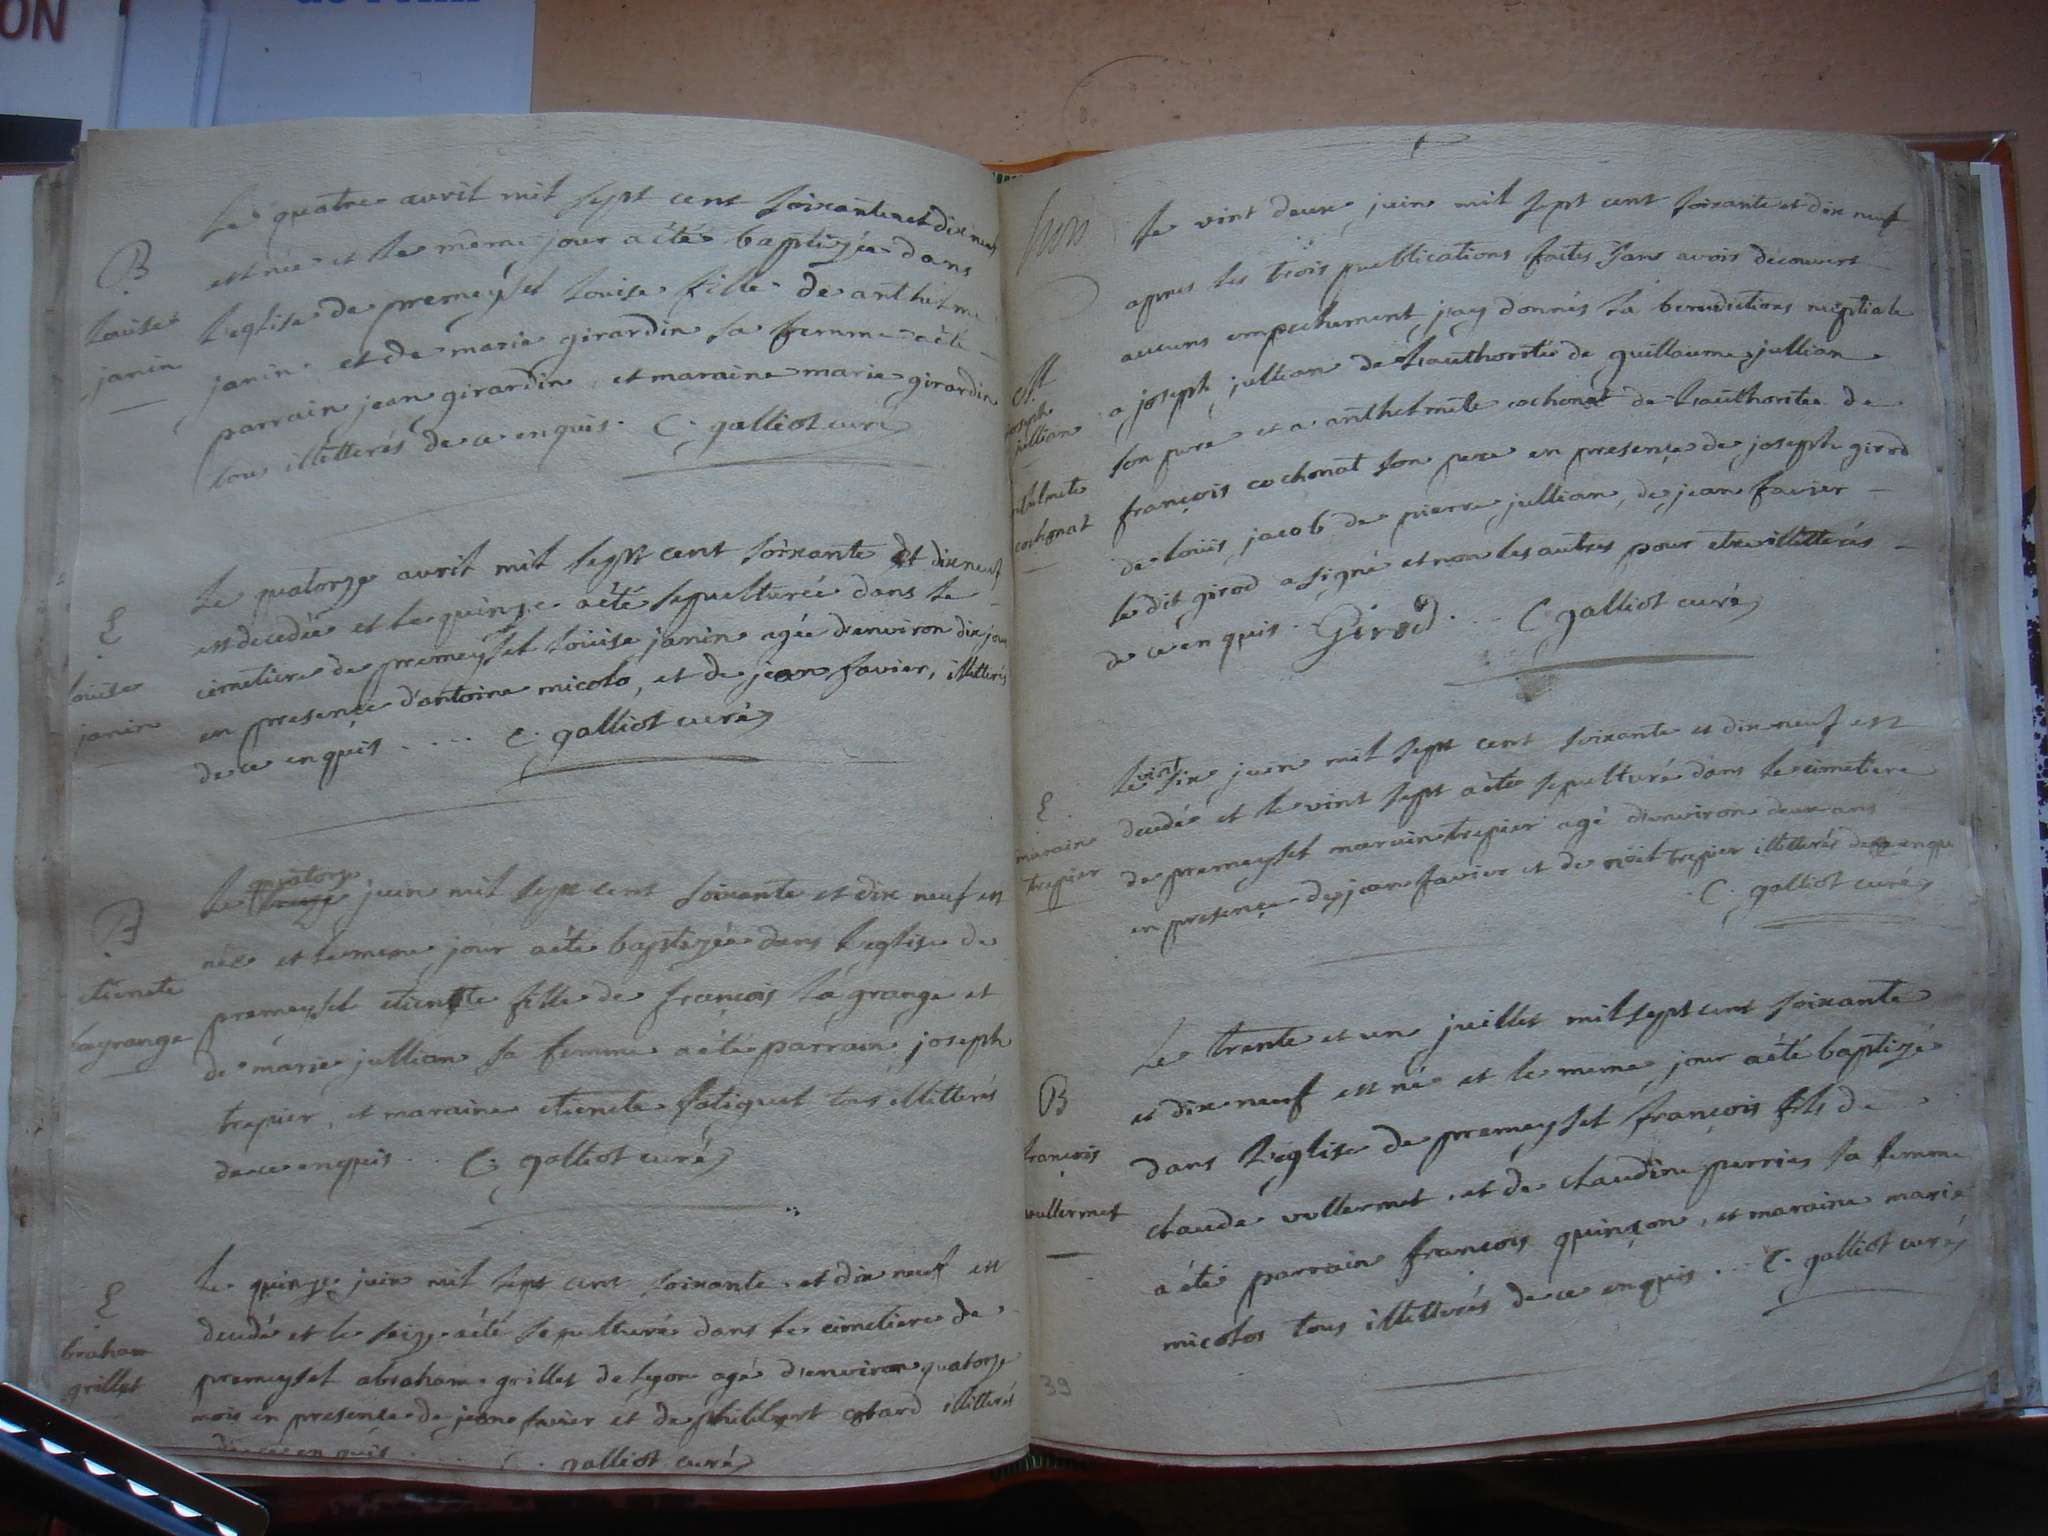 ON
B
Louise
janin
Le quatre avril mil sept cent soixante et dix neuf
est née et le même jour a été baptizée dans
L'eglise de premeysel Louise fille de anthelme
janin et de marie girardin sa femme a été
parrain jean girardin et maraine marie girardin
tous illitterés de ce enquis. C. galliot curé
E
louise
janin
Le quatorze avril mil sept cent soixante et dix neuf
est decedée et le quinze a été sepulturée dans le
cimetiere de premeysel Louise janin agée d'environ dix jours
en presence d'antoine micolo, et de jean favier, illitterés
de ce enquis .... C. galliot curé
B
etienete
lagrange
Le quatorze juin mil sept cent soixante et dix neuf est
née et le meme jour a été baptizée dans L'eglise de
premeysel etienete fille de françois La grange et
de marie jullian sa femme a été parrain joseph
trepier, et maraine etienete tous illitterés
de ce enquis .. C. galliot curé
E
braham
grillet
Le quinze juin mil sept cent soixante et dix neuf est
decedé et le seize a été sepulturé dans le cimetiere de
premeysel abraham grillet de Lyon agé d'environ quatorze
mois en presence de jean favier et de philibert illitterés
de ce enquis .... C. galliot curé
M
joseph
jullian
thelmete
cochonat
Le vint deux juin mil sept cent soixante et dix neuf
apres les trois publications faites sans avoir decouvert
aucuns empechement j'ay donnés la benedictions nuptiale
a joseph jullian de L'authorité de guillaume jullian
son pere et a anthelmete cochonat de L'authoritée de
françois cochonat son pere en presence de joseph girod
de Louis jacob de pierre jullian, de jean favier
le dit girod a signé et non les autres pour etre illitterés
de ce enquis. Girod ... C. galliot curé
E
marain
trepier
Le vint six juin mil sept cent soixante et dix neuf est
decedé et le vint sept a été sepulturé dans le cimetiere
de premeysel marain trepier agé d'environ deux ans
en presence de jean favier et de noël trepier illitterés de ce enquis
C. galliot curé
B
françois
vullermet
Le trente et un juillet mil sept cent soixante
et dix neuf est né et le meme jour a été baptizé
dans L'eglise de premeysel françois fils de
claude vullermet, et de claudine perrier sa femme
a été parrain françois quinson, et maraine marie
micolos tous illitterés de ce enquis ... C. galliot curé
39